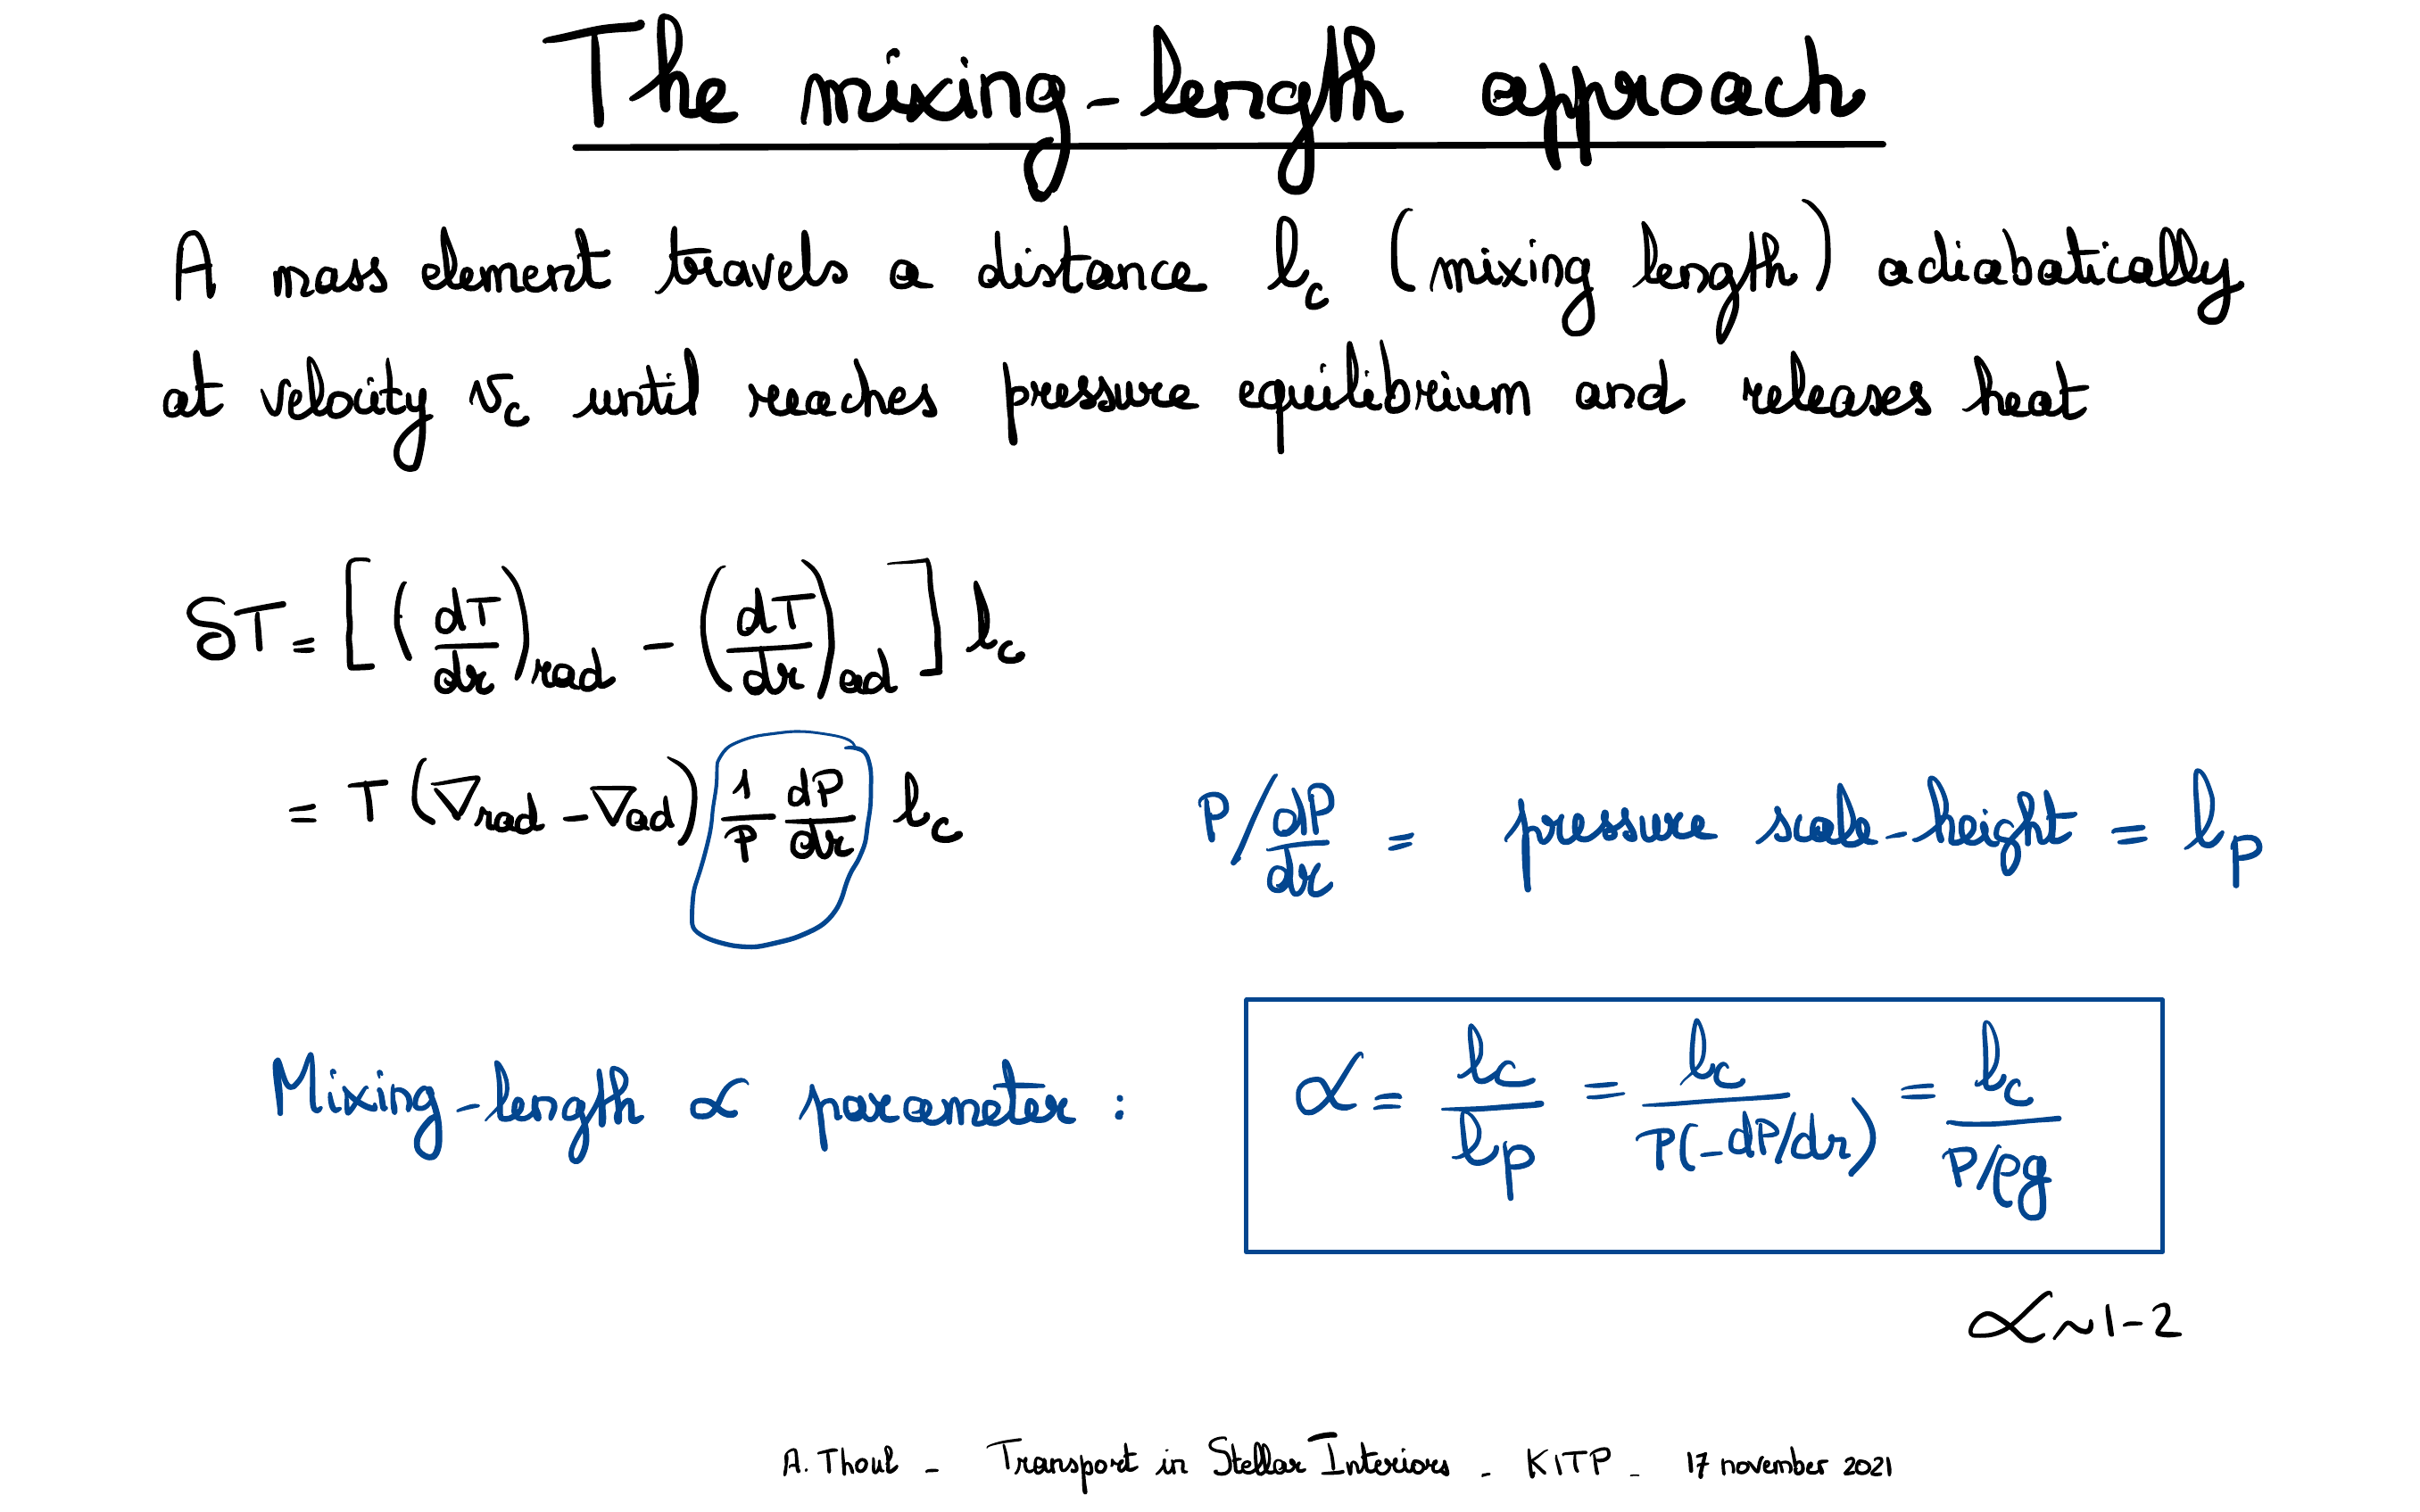 The mixing-length approach
A mass element travels a distance lc (mixing length) adiabatically
at velocity vc until reaches pressure equilibrium and releases heat
δT = [(dT/dr)rad - (dT/dr)ad] lc
= T (∇rad - ∇ad) 1/P dP/dr lc
P/dP/dr = pressure scale-height = lp
Mixing-length α parameter :
α = lc/lp = lc/P(-dP/dr) = lc/P/ρg
α ~ 1-2
A. Thoul - Transport in Stellar Interiors - KITP - 17 november 2021